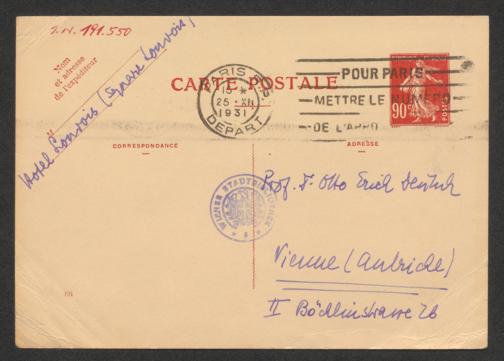 J.N. 191.550
Nom
et adresse
de l'expéditeur
M
Hotel Louvois (Square Louvois)
CARTE POSTALE
PARIS
25 XII
1931
DEPART
POUR PARIS
METTRE LE NUMERO
DE L'ARRO
90c
POSTES
CORRESPONDANCE
ADRESSE
WIENER STADTBIBLIOTHEK
Prof. Dr Otto Erich Deutsch
Vienne (Autriche)
II Böcklinstrasse 26